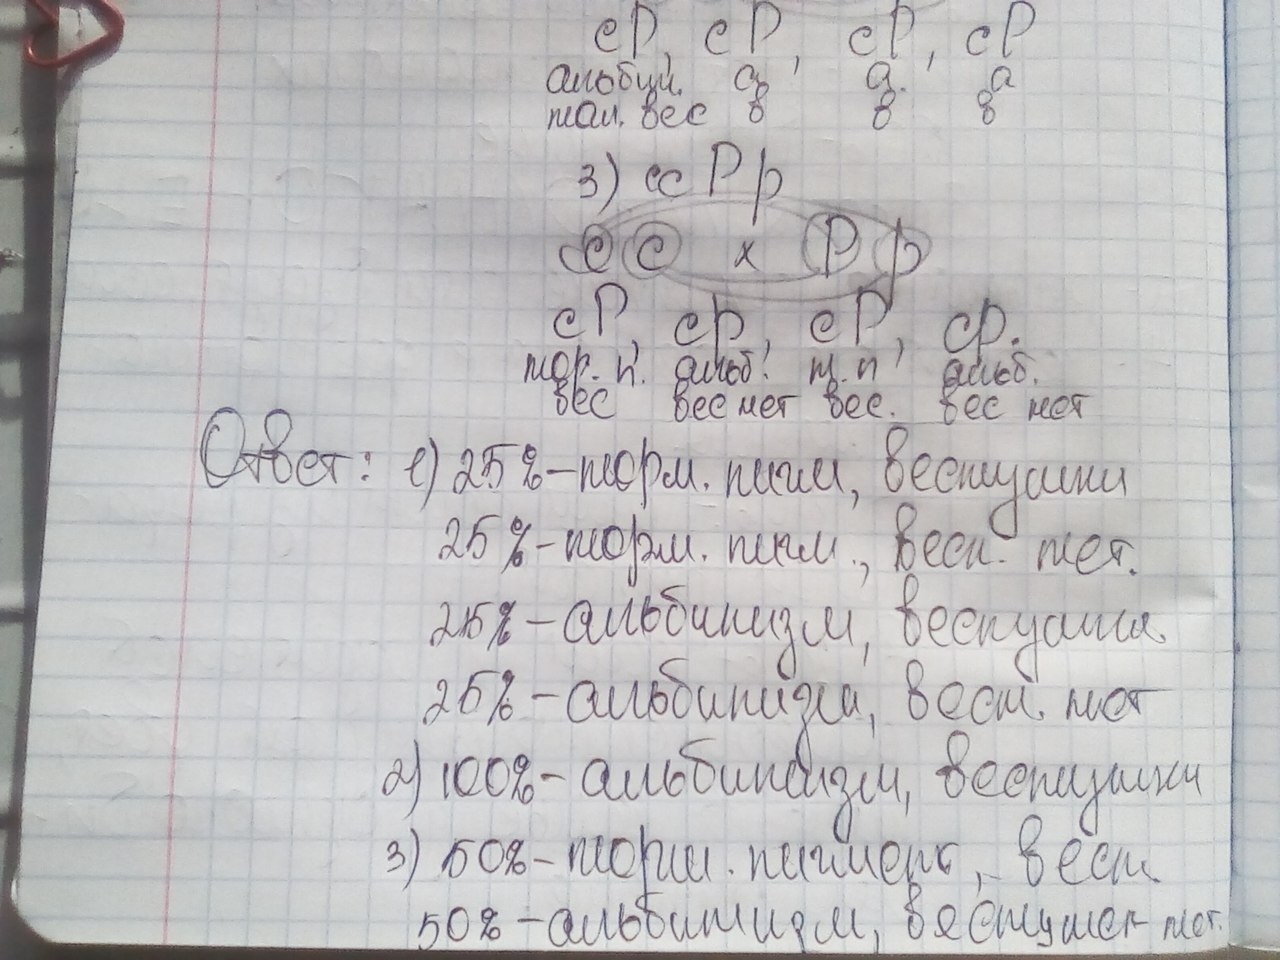 cP, cP, cP, cP
альбин. а а. а
нал. вес в в в
3) cc Pp
c c x P p
cP, cp, cP, cp.
нор. п. альб. н. п альб.
вес вес нет вес. вес нет
Ответ: 1) 25% - норм. пигм, веснушки
25% - норм. пигм., весн. нет.
25% - альбинизм, веснушки
25% - альбинизм, весн. нет
2) 100% - альбинизм, веснушки
3) 50% - норм. пигмент, весн.
50% - альбинизм, веснушек нет.